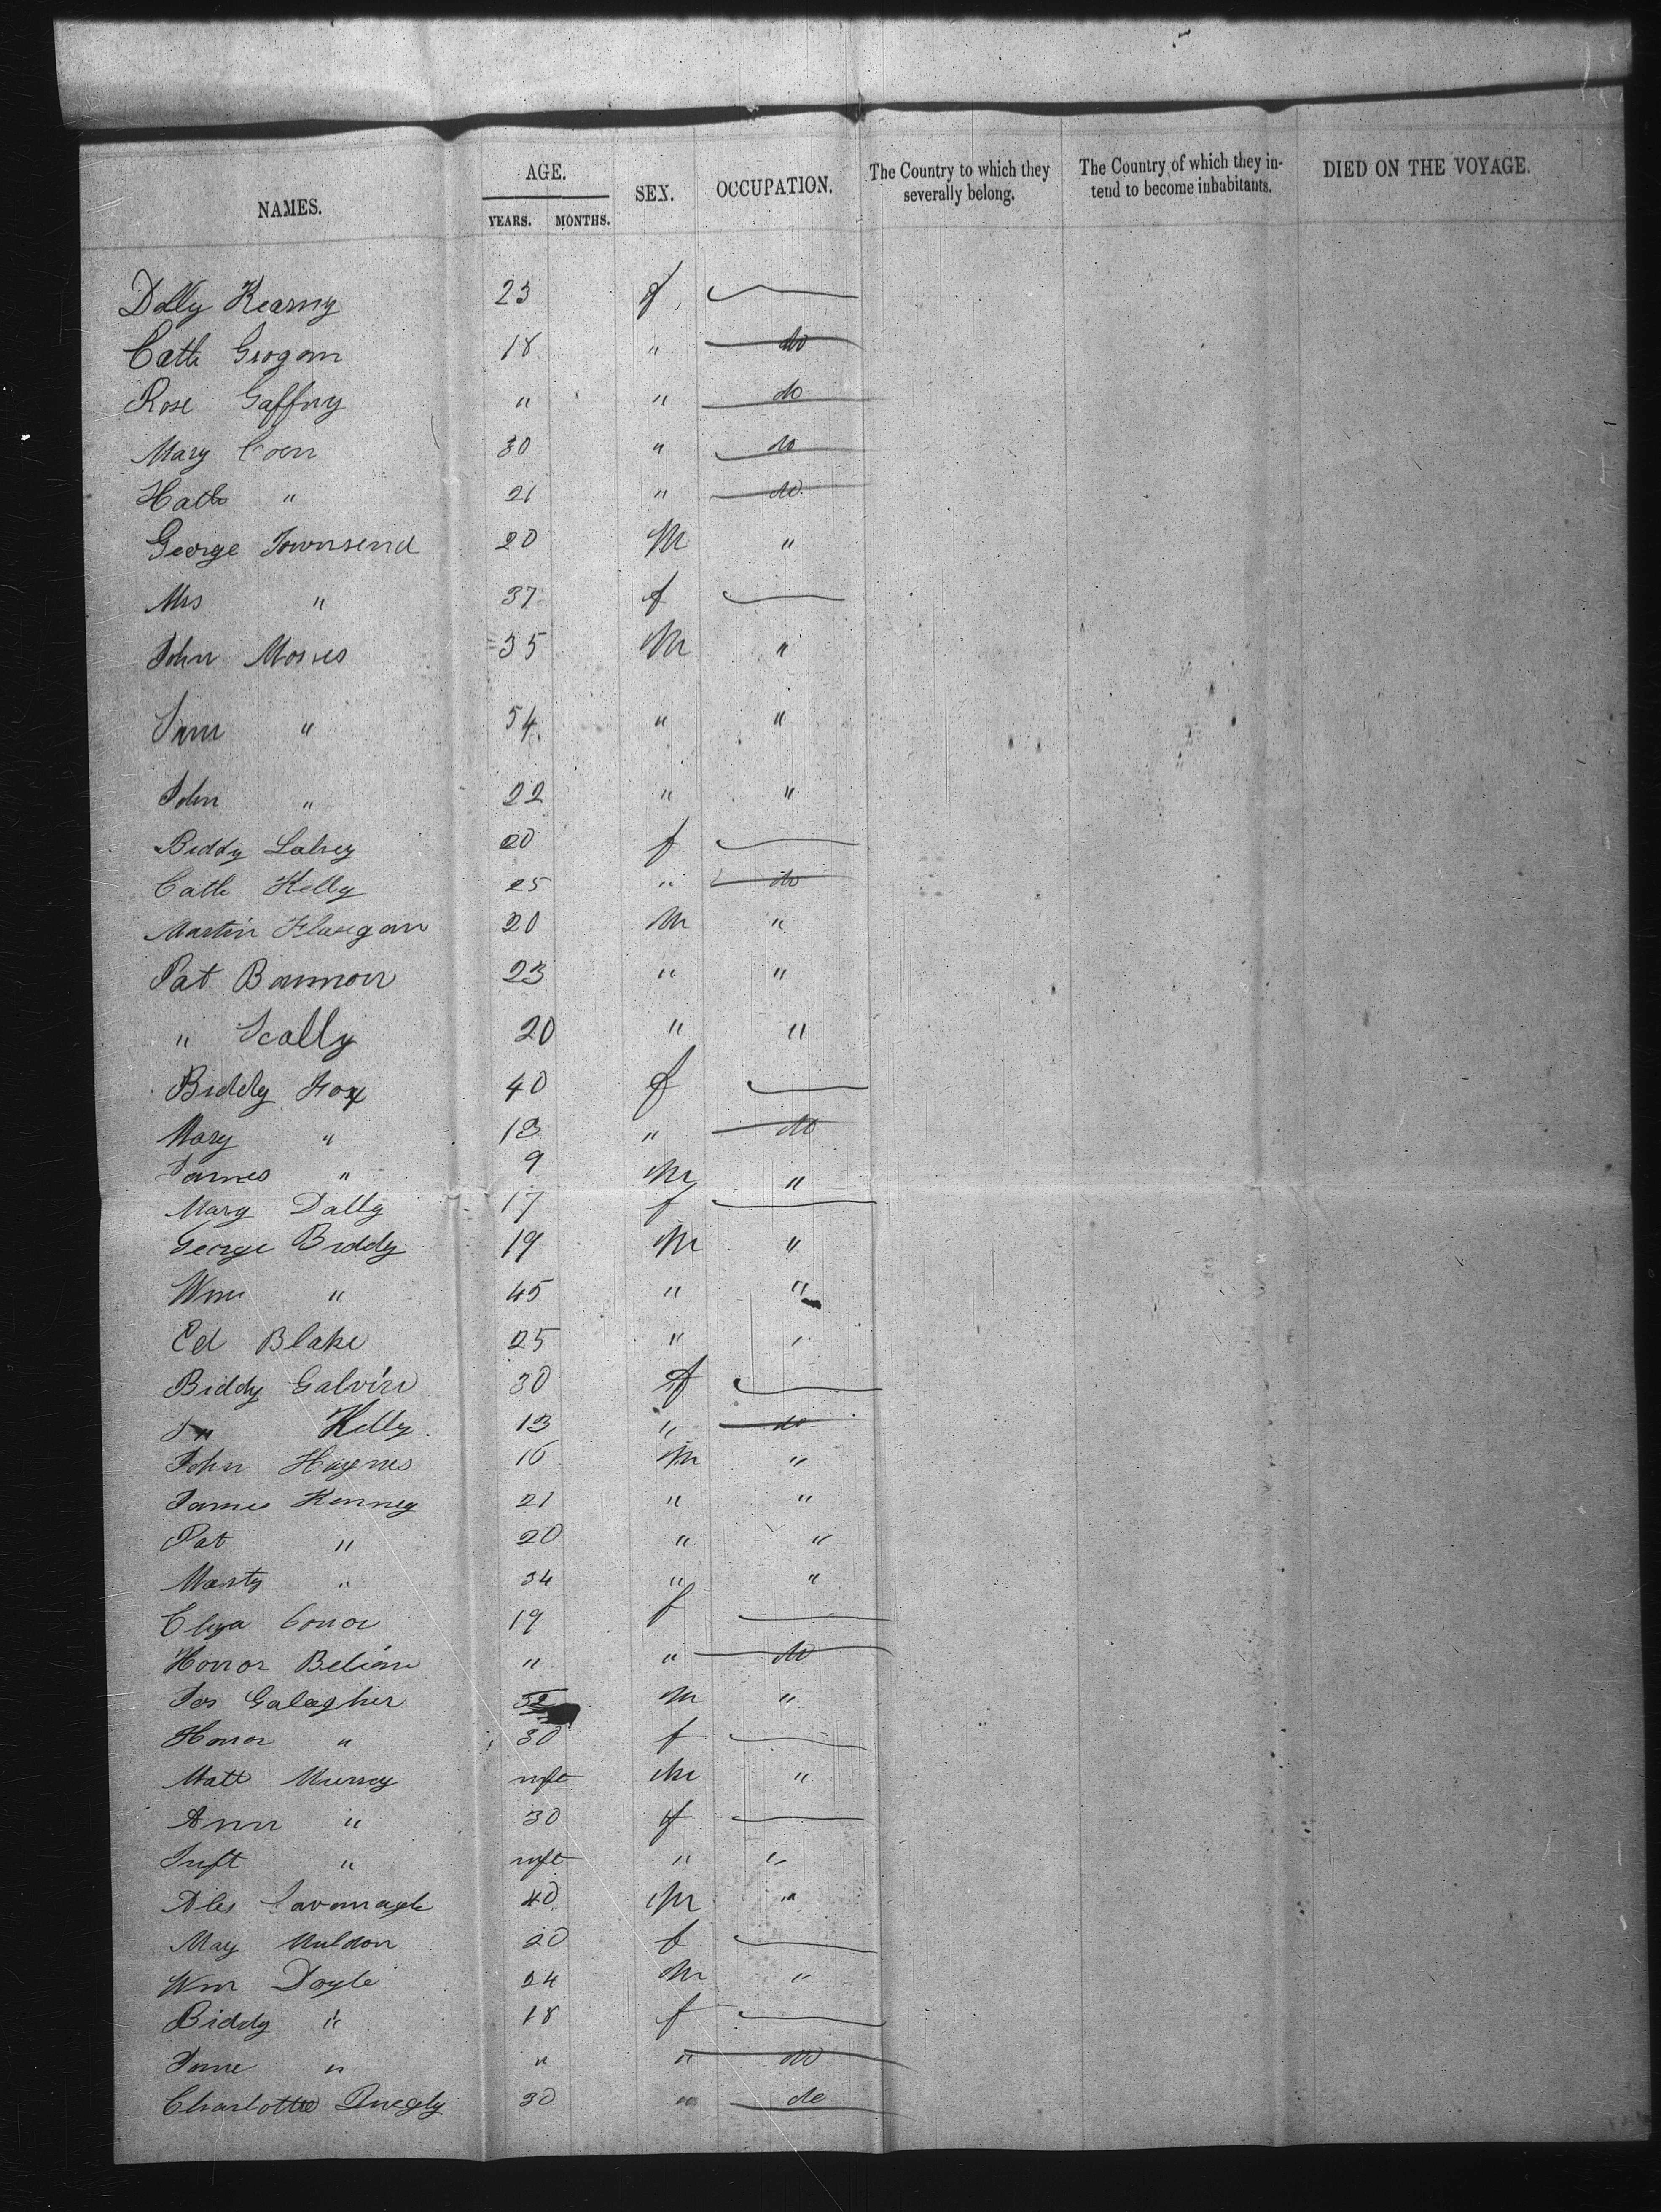 NAMES. AGE. YEARS. MONTHS. SEX. OCCUPATION. The Country to which they severally belong. The Country of which they intend to become inhabitants. DIED ON THE VOYAGE.
Dolly Kearny 23 f
Cath Grogan 18 " do
Rose Gaffny " " do
Mary Coen 30 " do
Hath " 21 " do
George Townsend 20 M "
Mrs " 37 f
John Mosses 35 M "
Sam " 54 " "
John " 22 " "
Biddy 20 f
Cath Kelly 25 " do
Martin Flanegan 20 M "
Pat Bannon 23 " "
" Scally 20 " "
Biddy Fox 40 f
Mary " 13 " do
James " 9 M "
Mary Dally 17 f
George Biddy 19 M "
Wm " 45 " "
Ed Blake 25 " "
Biddy Galvin 30 f
" Kelly 13 " do
John Haynes 16 M "
James Kenney 21 " "
Pat " 20 " "
Marty " 34 " "
Eliza Conor 19 f
Honor " " do
Jas Galagher M "
Honor " 30 f
Matt Murrey inft M "
Ann " 30 f
Inft " inft " "
Cavanagh 40 M "
May Muldon 20 f
Wm Doyle 24 M "
Biddy " 18 f
Jane " " " do
Charlotte 30 " do